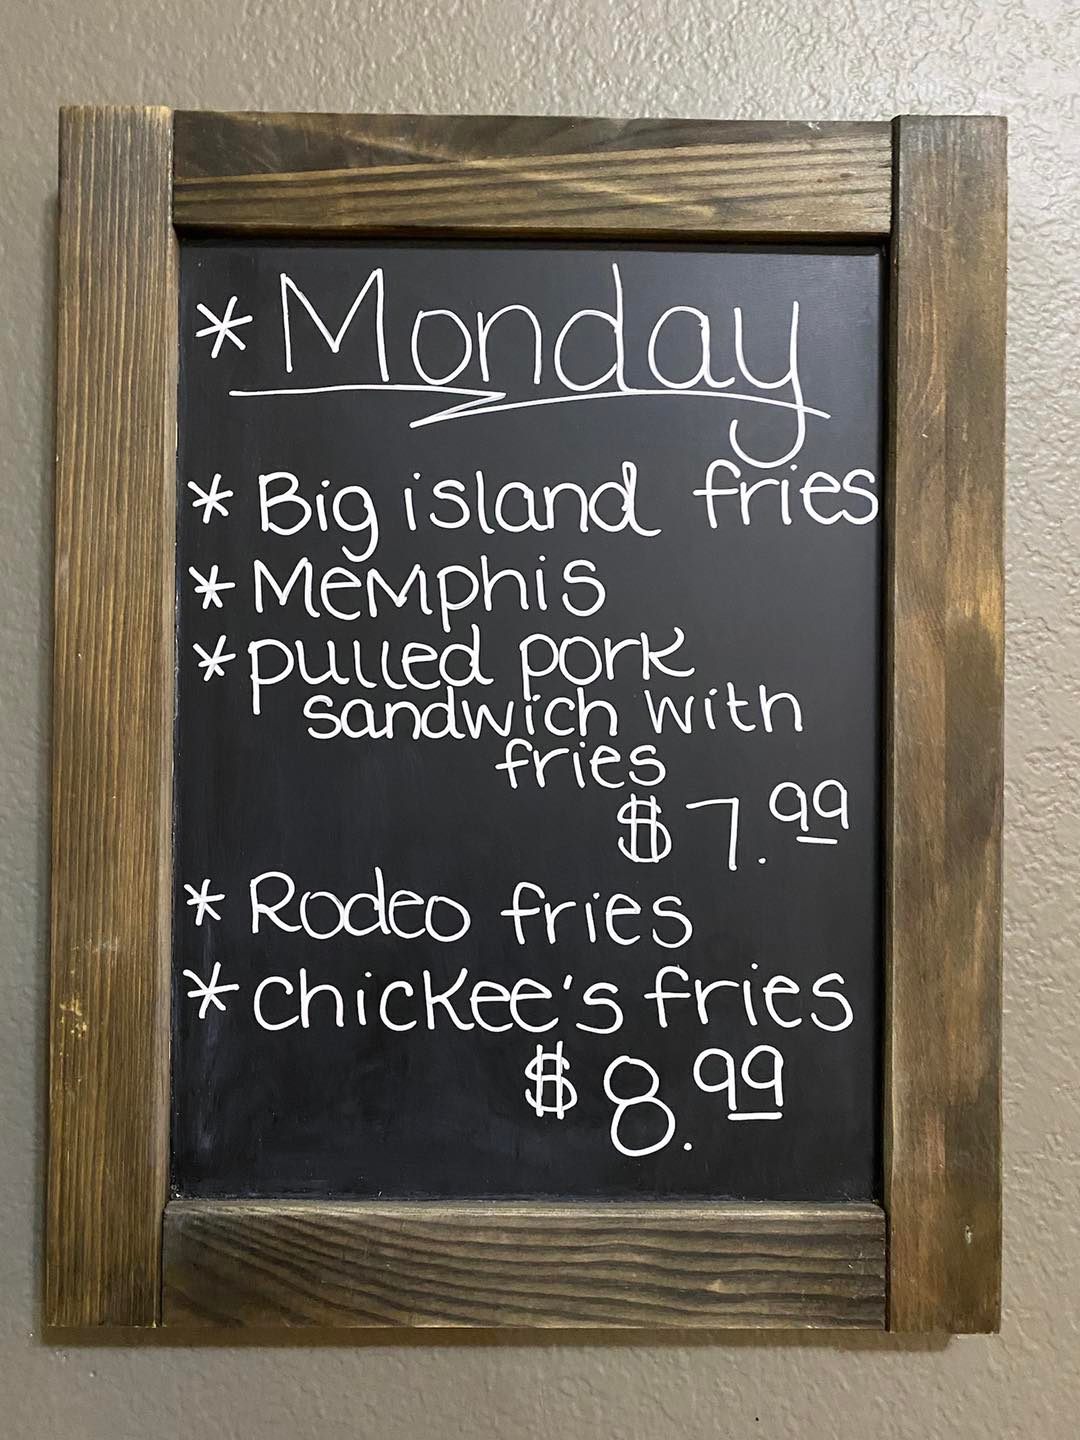 * Monday
* Big island fries
* Memphis
* pulled pork
sandwich with
fries
$7.99
* Rodeo fries
* chickee's fries
$8.99